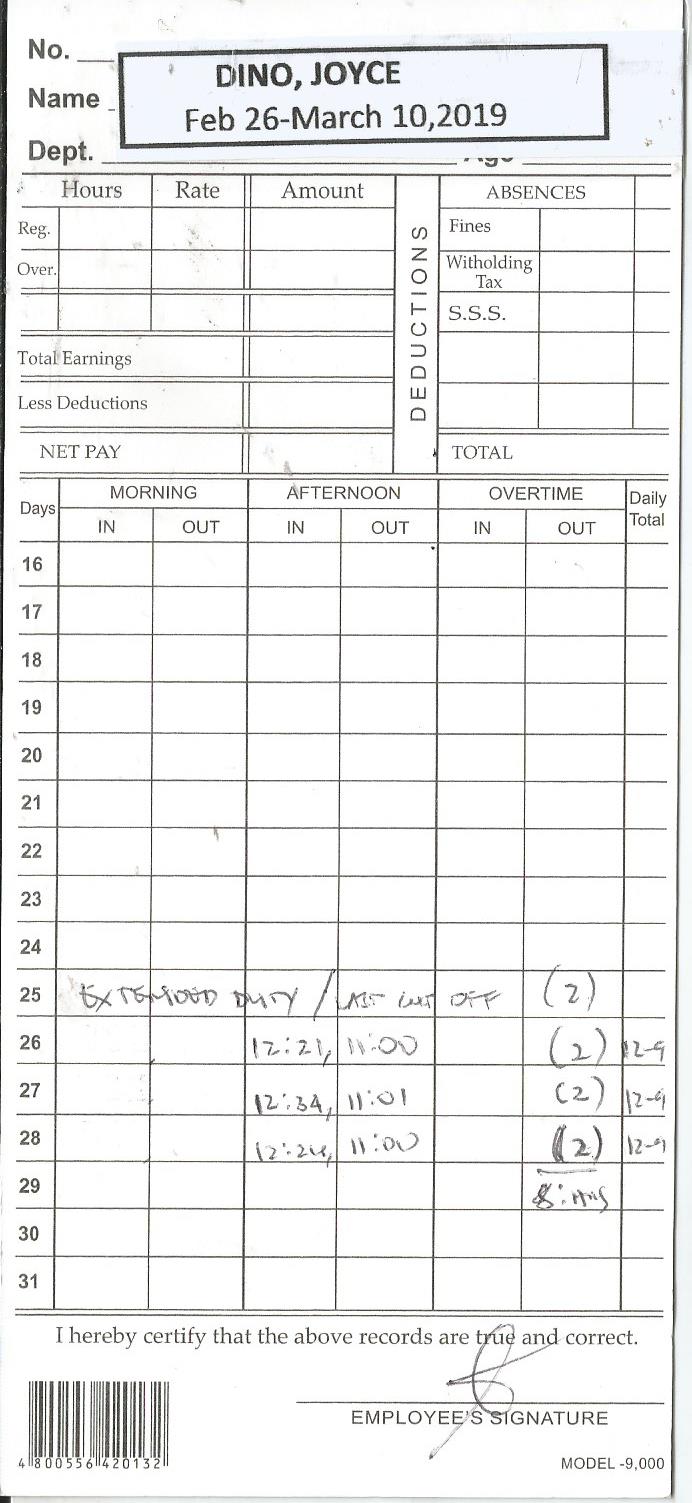 No.
DINO, JOYCE
Name
Feb 26-March 10,2019
Dept. Age
Hours Rate Amount DEDUCTIONS ABSENCES
Reg. Fines
Over. Witholding Tax
S.S.S.
Total Earnings
Less Deductions
NET PAY TOTAL
Days MORNING AFTERNOON OVERTIME Daily Total
IN OUT IN OUT IN OUT
16
17
18
19
20
21
22
23
24
25 EXTENDED DUTY / LAST CUT OFF (2)
26 12:21, 11:00 (2) 12-9
27 12:34, 11:01 (2) 12-9
28 11:00 (2) 12-9
29 8:
30
31
I hereby certify that the above records are true and correct.
EMPLOYEE'S SIGNATURE
4 800556 420132
MODEL -9,000